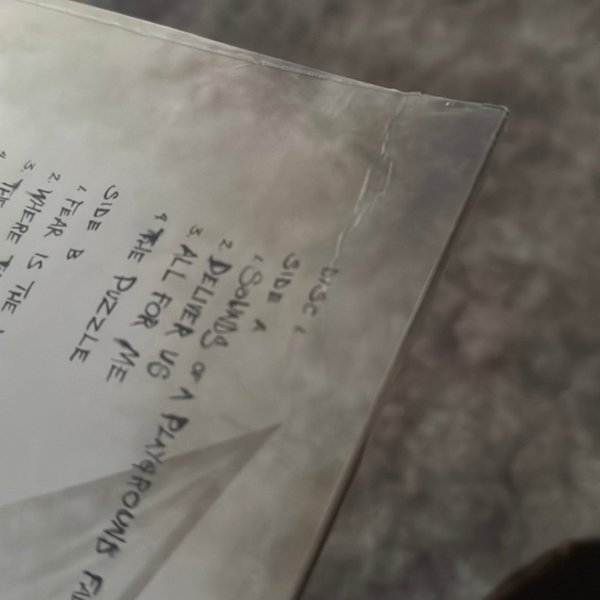 DISC 1
SIDE A
1. SOUNDS OF A PLAYGROUND
2. DELIVER US
3. ALL FOR ME
4. THE PUZZLE
SIDE B
1. FEAR IS THE
2. WHERE
3. THE